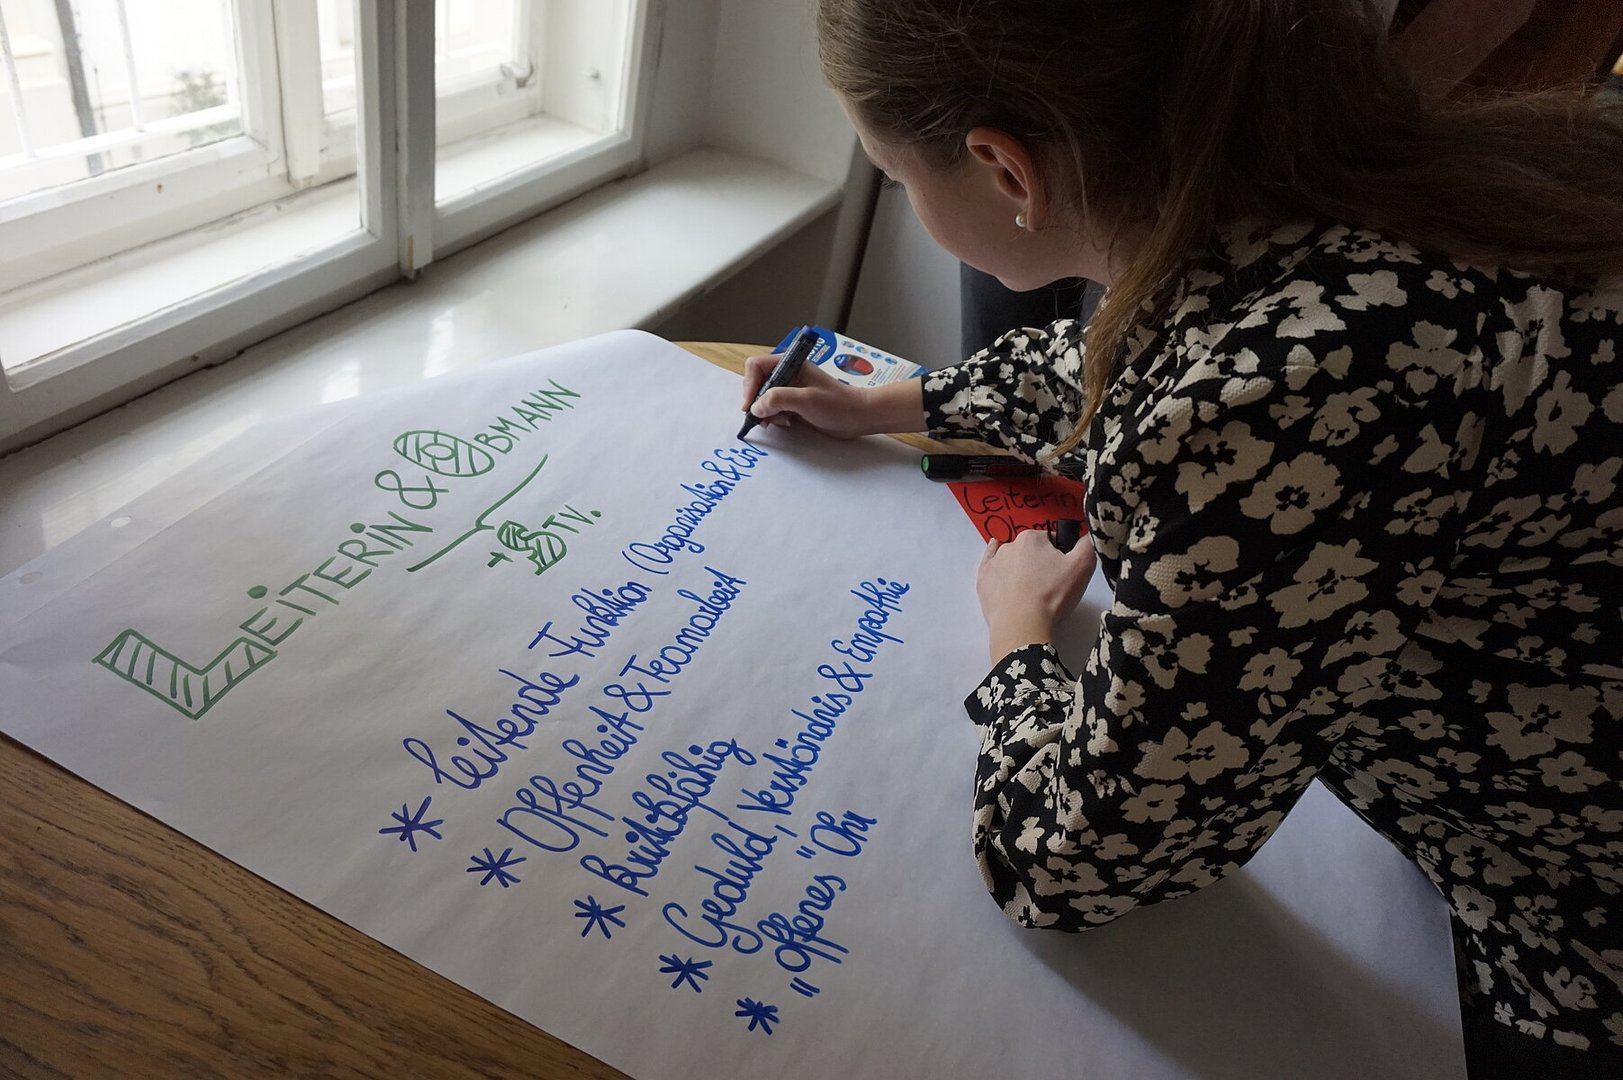 LEITERIN & OBMANN
+ STV.
* Leitende Funktion (Organisation & Ein
* Offenheit & Teamarbeit
* Kritikfähig
* Geduld, Verständnis & Empathie
* „offenes" Ohr
Leiterin
Obma